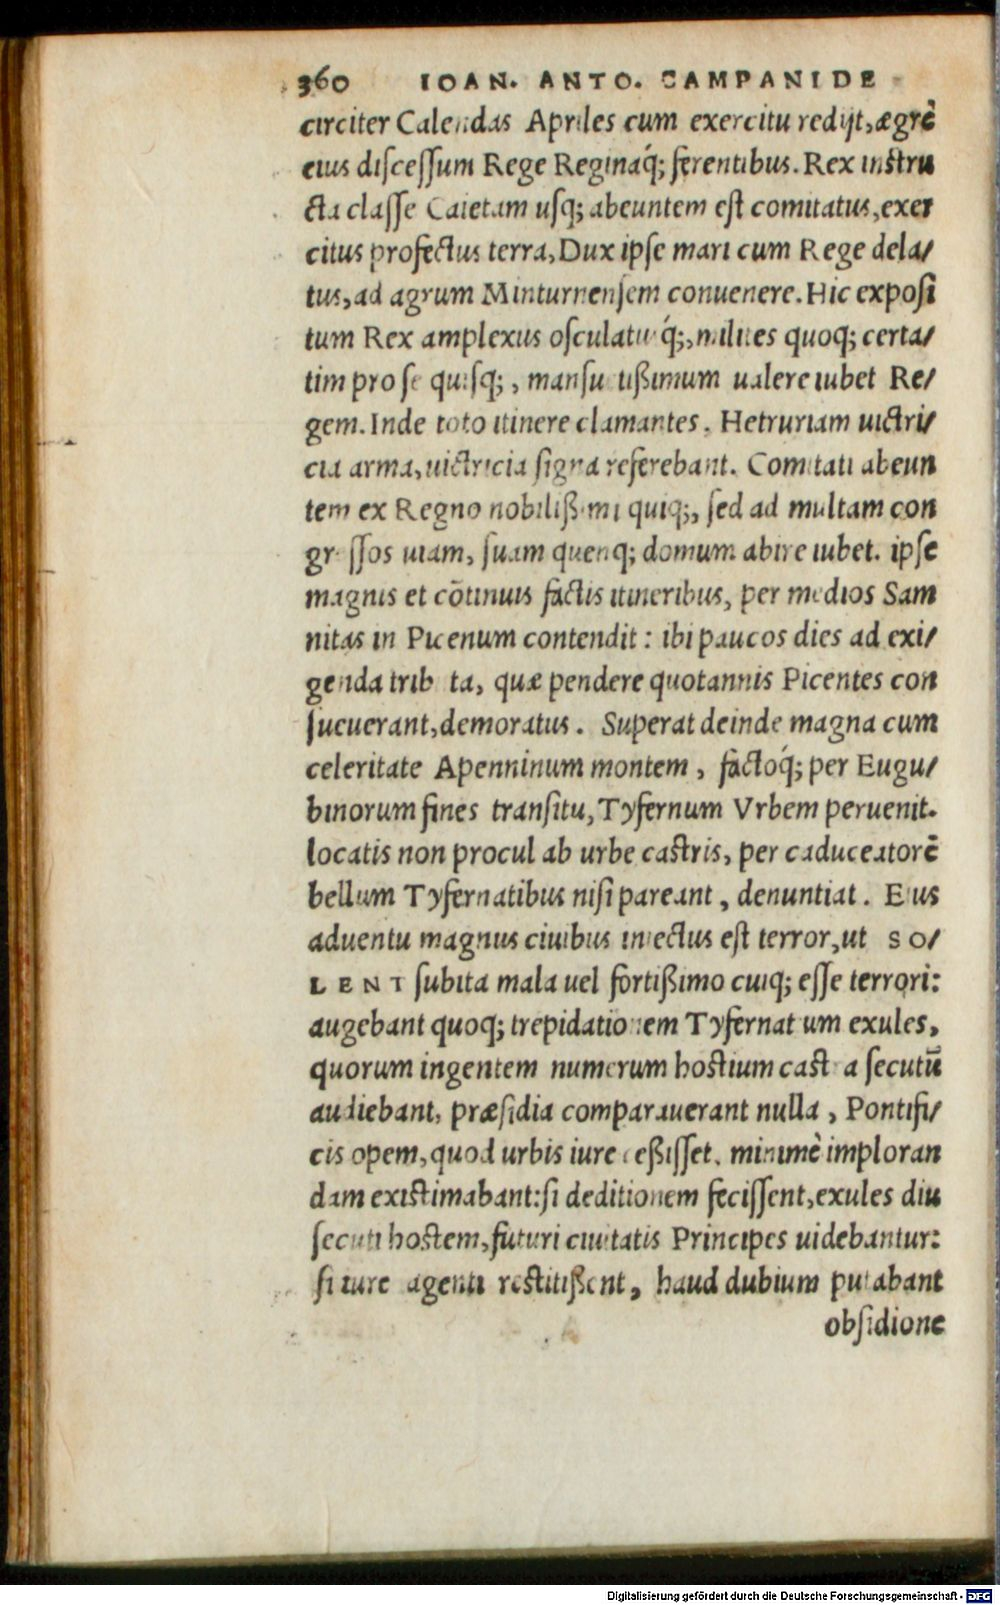 360 IOAN. ANTO. CAMPANI DE
circiter Calendas Apriles cum exercitu redijt, ægrè
eius discessum Rege Reginaq́; ferentibus. Rex instru
cta classe Caietam usq; abeuntem est comitatus, exer
citus profectus terra, Dux ipse mari cum Rege dela/
tus, ad agrum Minturnensem conuenere. Hic exposi
tum Rex amplexus osculatusq́;, milites quoq; certa/
tim pro se quisq;, mansuetißimum ualere iubet Re/
gem. Inde toto itinere clamantes. Hetruriam uictri/
cia arma, uictricia signa referebant. Comitati abeun
tem ex Regno nobilißimi quiq;, sed ad multam con
gressos uiam, suam quenq; domum abire iubet. ipse
magnis et cõtinuis factis itineribus, per medios Sam
nitas in Picenum contendit: ibi paucos dies ad exi/
genda tributa, quæ pendere quotannis Picentes con
sueuerant, demoratus. Superat deinde magna cum
celeritate Apenninum montem, factoq́; per Eugu/
binorum fines transitu, Tyfernum Vrbem peruenit.
locatis non procul ab urbe castris, per caduceatorẽ
bellum Tyfernatibus nisi pareant, denuntiat. Eius
aduentu magnus ciuibus iniectus est terror, ut SO/
LENT subita mala uel fortißimo cuiq; esse terrori:
augebant quoq; trepidationem Tyfernatum exules,
quorum ingentem numerum hostium castra secutũ
audiebant, præsidia comparauerant nulla, Pontifi/
cis opem, quod urbis iure ceßisset, minimè imploran
dam existimabant: si deditionem fecissent, exules diu
secuti hostem, futuri ciuitatis Principes uidebantur:
si iure agenti restitißent, haud dubium putabant
obsidione
Digitalisierung gefördert durch die Deutsche Forschungsgemeinschaft - DFG